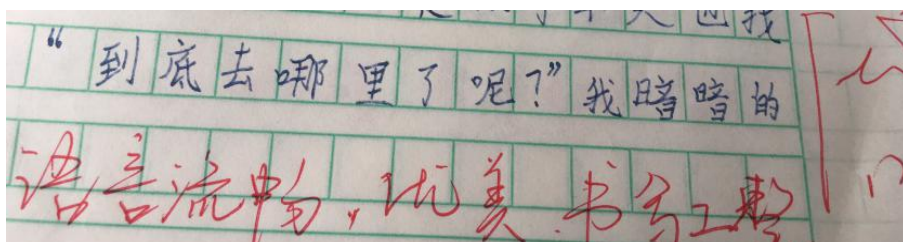 “到底去哪里了呢？”我暗暗的
语言流畅，优美.书写工整